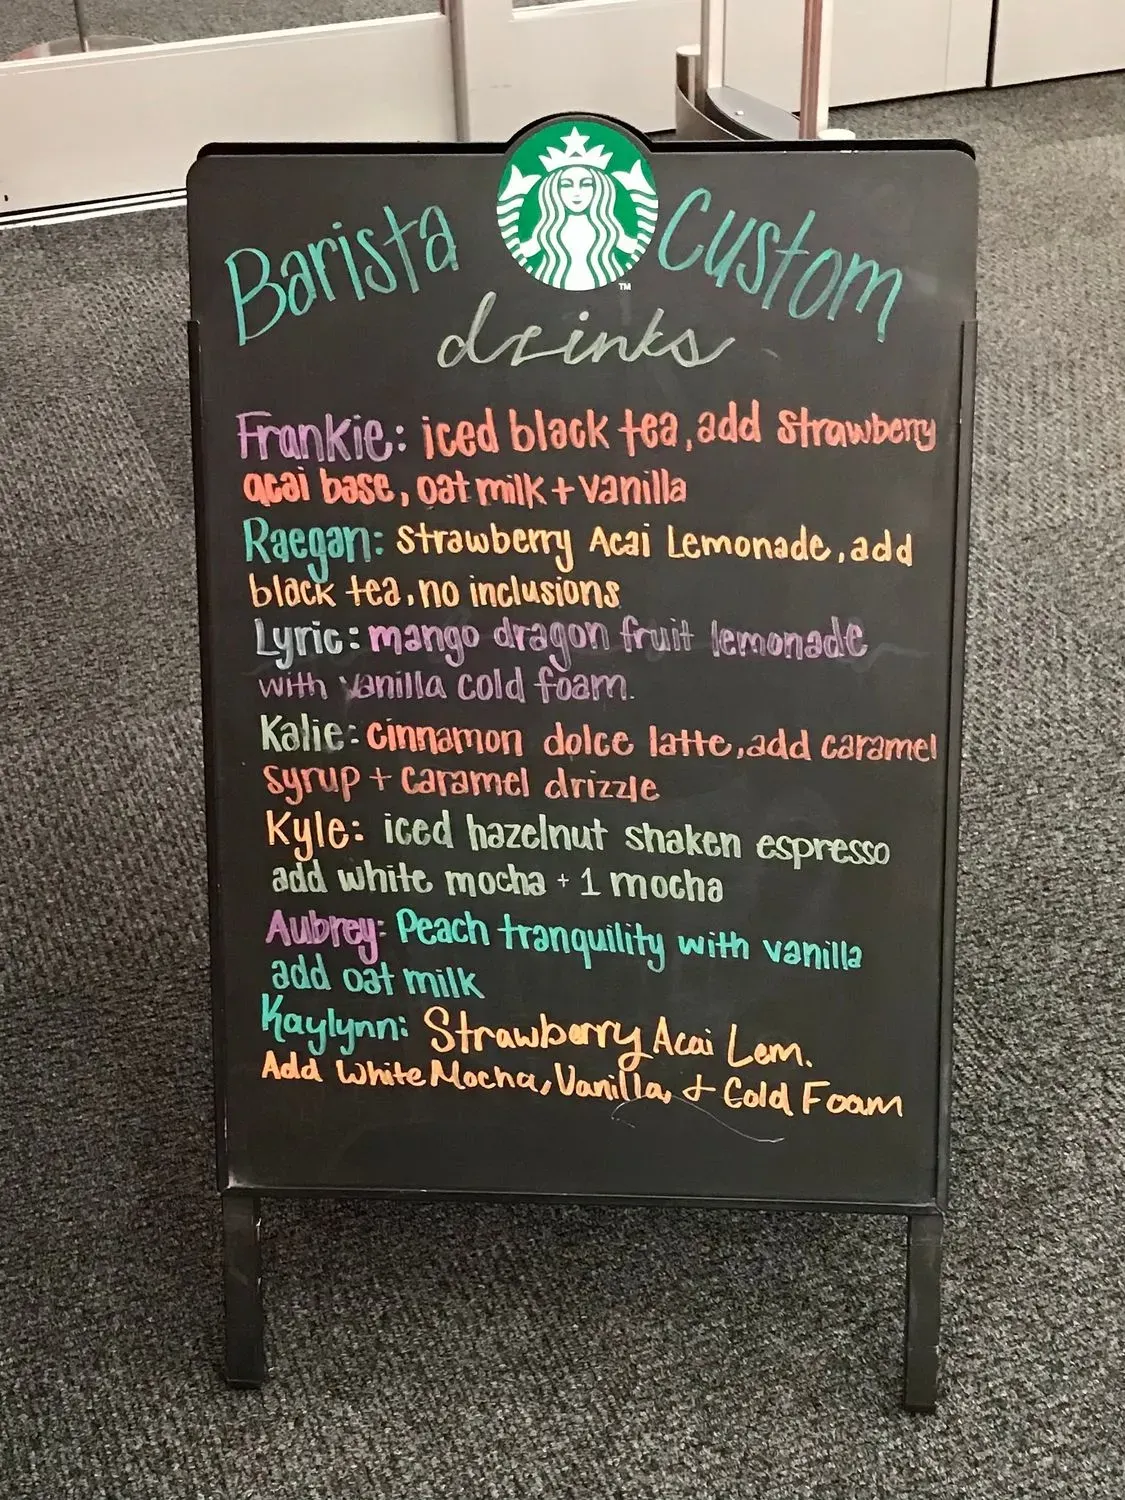 Barista Custom
drinks
TM
Frankie: iced black tea, add strawberry
acai base, oat milk + vanilla
Raegan: strawberry Acai Lemonade, add
black tea, no inclusions
Lyric: mango dragon fruit lemonade
with vanilla cold foam.
Kalie: cinnamon dolce latte, add caramel
syrup + caramel drizzle
Kyle: iced hazelnut shaken espresso
add white mocha + 1 mocha
Aubrey: Peach tranquility with vanilla
add oat milk
Kaylynn: Strawberry Acai Lem.
Add White Mocha, Vanilla, + Cold Foam